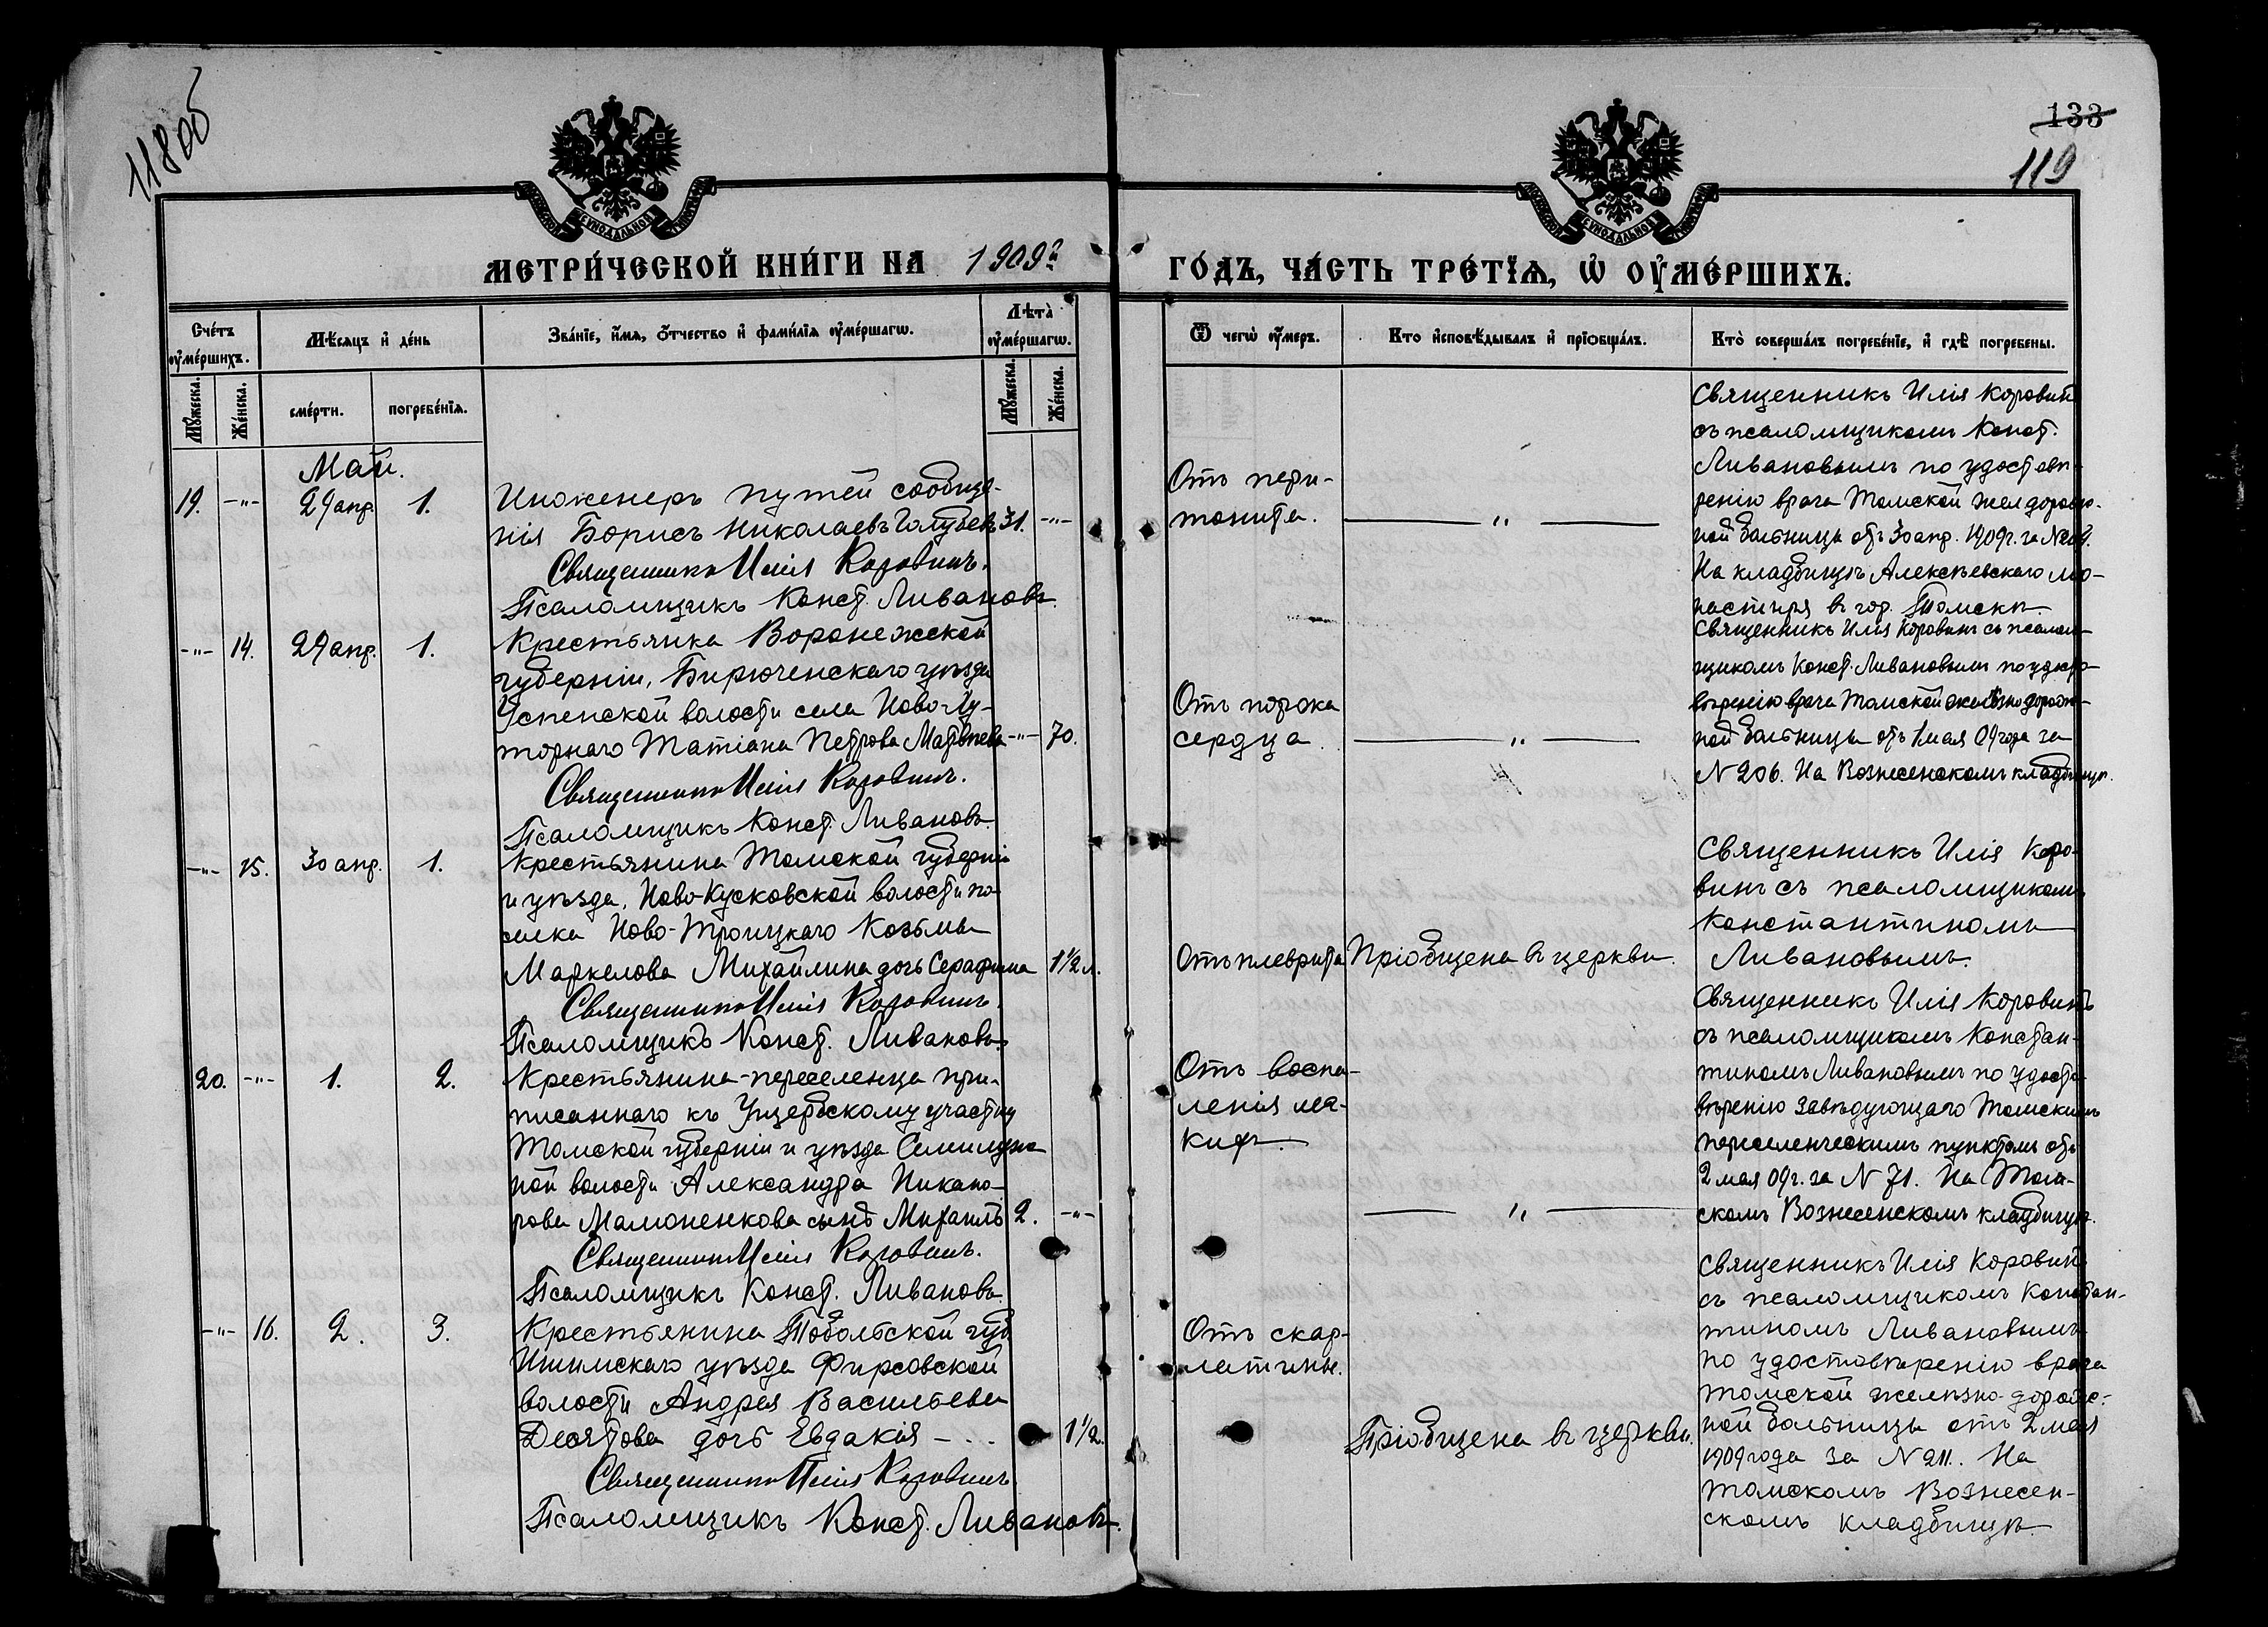 118об
133
119
МЕТРИ́ЧЕСКОЙ КНИ́ГИ НА 1909 г.
ГО́ДЪ, ЧА́СТЬ ТРЕ́ТЇѦ, Ѡ҆ ОУ҆МЕ́РШИХЪ.
Сче́тъ оу҆ме́ршихъ.
Мѣ́сѧцъ и҆ де́нь
Зва́нїе, и҆́мѧ, ѻ҆́тчество и҆ фами́лїѧ оу҆ме́ршагѡ.
Лѣта̀ оу҆ме́ршагѡ.
Ѿ чегѡ̀ оу҆́меръ.
Кто и҆сповѣ́дывалъ и҆ прїѡбща́лъ.
Кто̀ соверша́лъ погребе́нїе, и҆ гдѣ̀ погребены.
Мꙋ́жеска.
Же́нска.
сме́рти.
погребе́нїѧ.
Мꙋ́жеска.
Же́нска.
Май.
19. -"- 29 апр. 1.
Инженеръ путей сообще-
нія Борисъ Николаевъ Голубевъ 31. -"-
Священникъ Илія Коровинъ.
Псаломщикъ Конст. Ливановъ.
Отъ пери-
тонита.
"
Священникъ Илія Коровинъ
съ псаломщикомъ Конст.
Ливановымъ по удостовѣ-
ренію врача Томской жел дорож-
ной больницы отъ 30 апр. 1909 г. за №
На кладбищѣ Алексѣевскаго мо-
настыря въ гор. Томскѣ.
-"- 14. 29 апр. 1.
Крестьянка Воронежской
губерніи, Бирюченскаго уѣзда
Успенской волости села Ново-Ху-
торнаго Татіана Петрова Матвѣева -"- 70.
Священникъ Илія Коровинъ.
Псаломщикъ Конст. Ливановъ.
Отъ порока
сердца.
"
Священникъ Илія Коровинъ съ псалом-
щикомъ Конст. Ливановымъ по удосто-
вѣренію врача Томской желѣзнодорож-
ной больницы отъ 1 мая 09 года за
N 206. На Вознесенскомъ кладбищѣ.
-"- 15. 30 апр. 1.
Крестьянина Томской губерніи
и уѣзда, Ново-Кусковской волости по-
селка Ново-Троицкаго Козьмы
Маркелова Михайлина дочь Серафима 1 1/2 л.
Священникъ Илія Коровинъ.
Псаломщикъ Конст. Ливановъ.
Отъ плеврита
Пріобщена въ церкви.
Священникъ Илія Коро-
винъ съ псаломщикомъ
Константиномъ
Ливановымъ.
20. -"- 1. 2.
Крестьянина-переселенца при-
писаннаго къ участку
Томской губерніи и уѣзда Семилуж-
ной волости Александра Никано-
рова Мамоненкова сынъ Михаилъ 2. -"-
Священникъ Илія Коровинъ.
Псаломщикъ Конст. Ливановъ.
Отъ воспа-
ленія
"
Священникъ Илія Коровинъ
съ псаломщикомъ Констан-
тиномъ Ливановымъ по удосто-
вѣренію завѣдующаго Томскимъ
переселенческимъ пунктомъ отъ
2 мая 09 г. за N 71. На Том-
скомъ Вознесенскомъ кладбищѣ.
-"- 16. 2. 3.
Крестьянина Тобольской губ.
Ишимскаго уѣзда Фирсовской
волости Андрея Васильева
Десятова дочь Евдакія - 1 1/2.
Священникъ Илія Коровинъ.
Псаломщикъ Конст. Ливановъ.
Отъ скар-
латины.
Пріобщена въ церкви.
Священникъ Илія Коровинъ
съ псаломщикомъ Констан-
тиномъ Ливановымъ
по удостовѣренію врача
Томской желѣзно-дорож-
ной больницы отъ 2 мая
1909 года за N 211. На
Томскомъ Вознесен-
скомъ кладбищѣ.